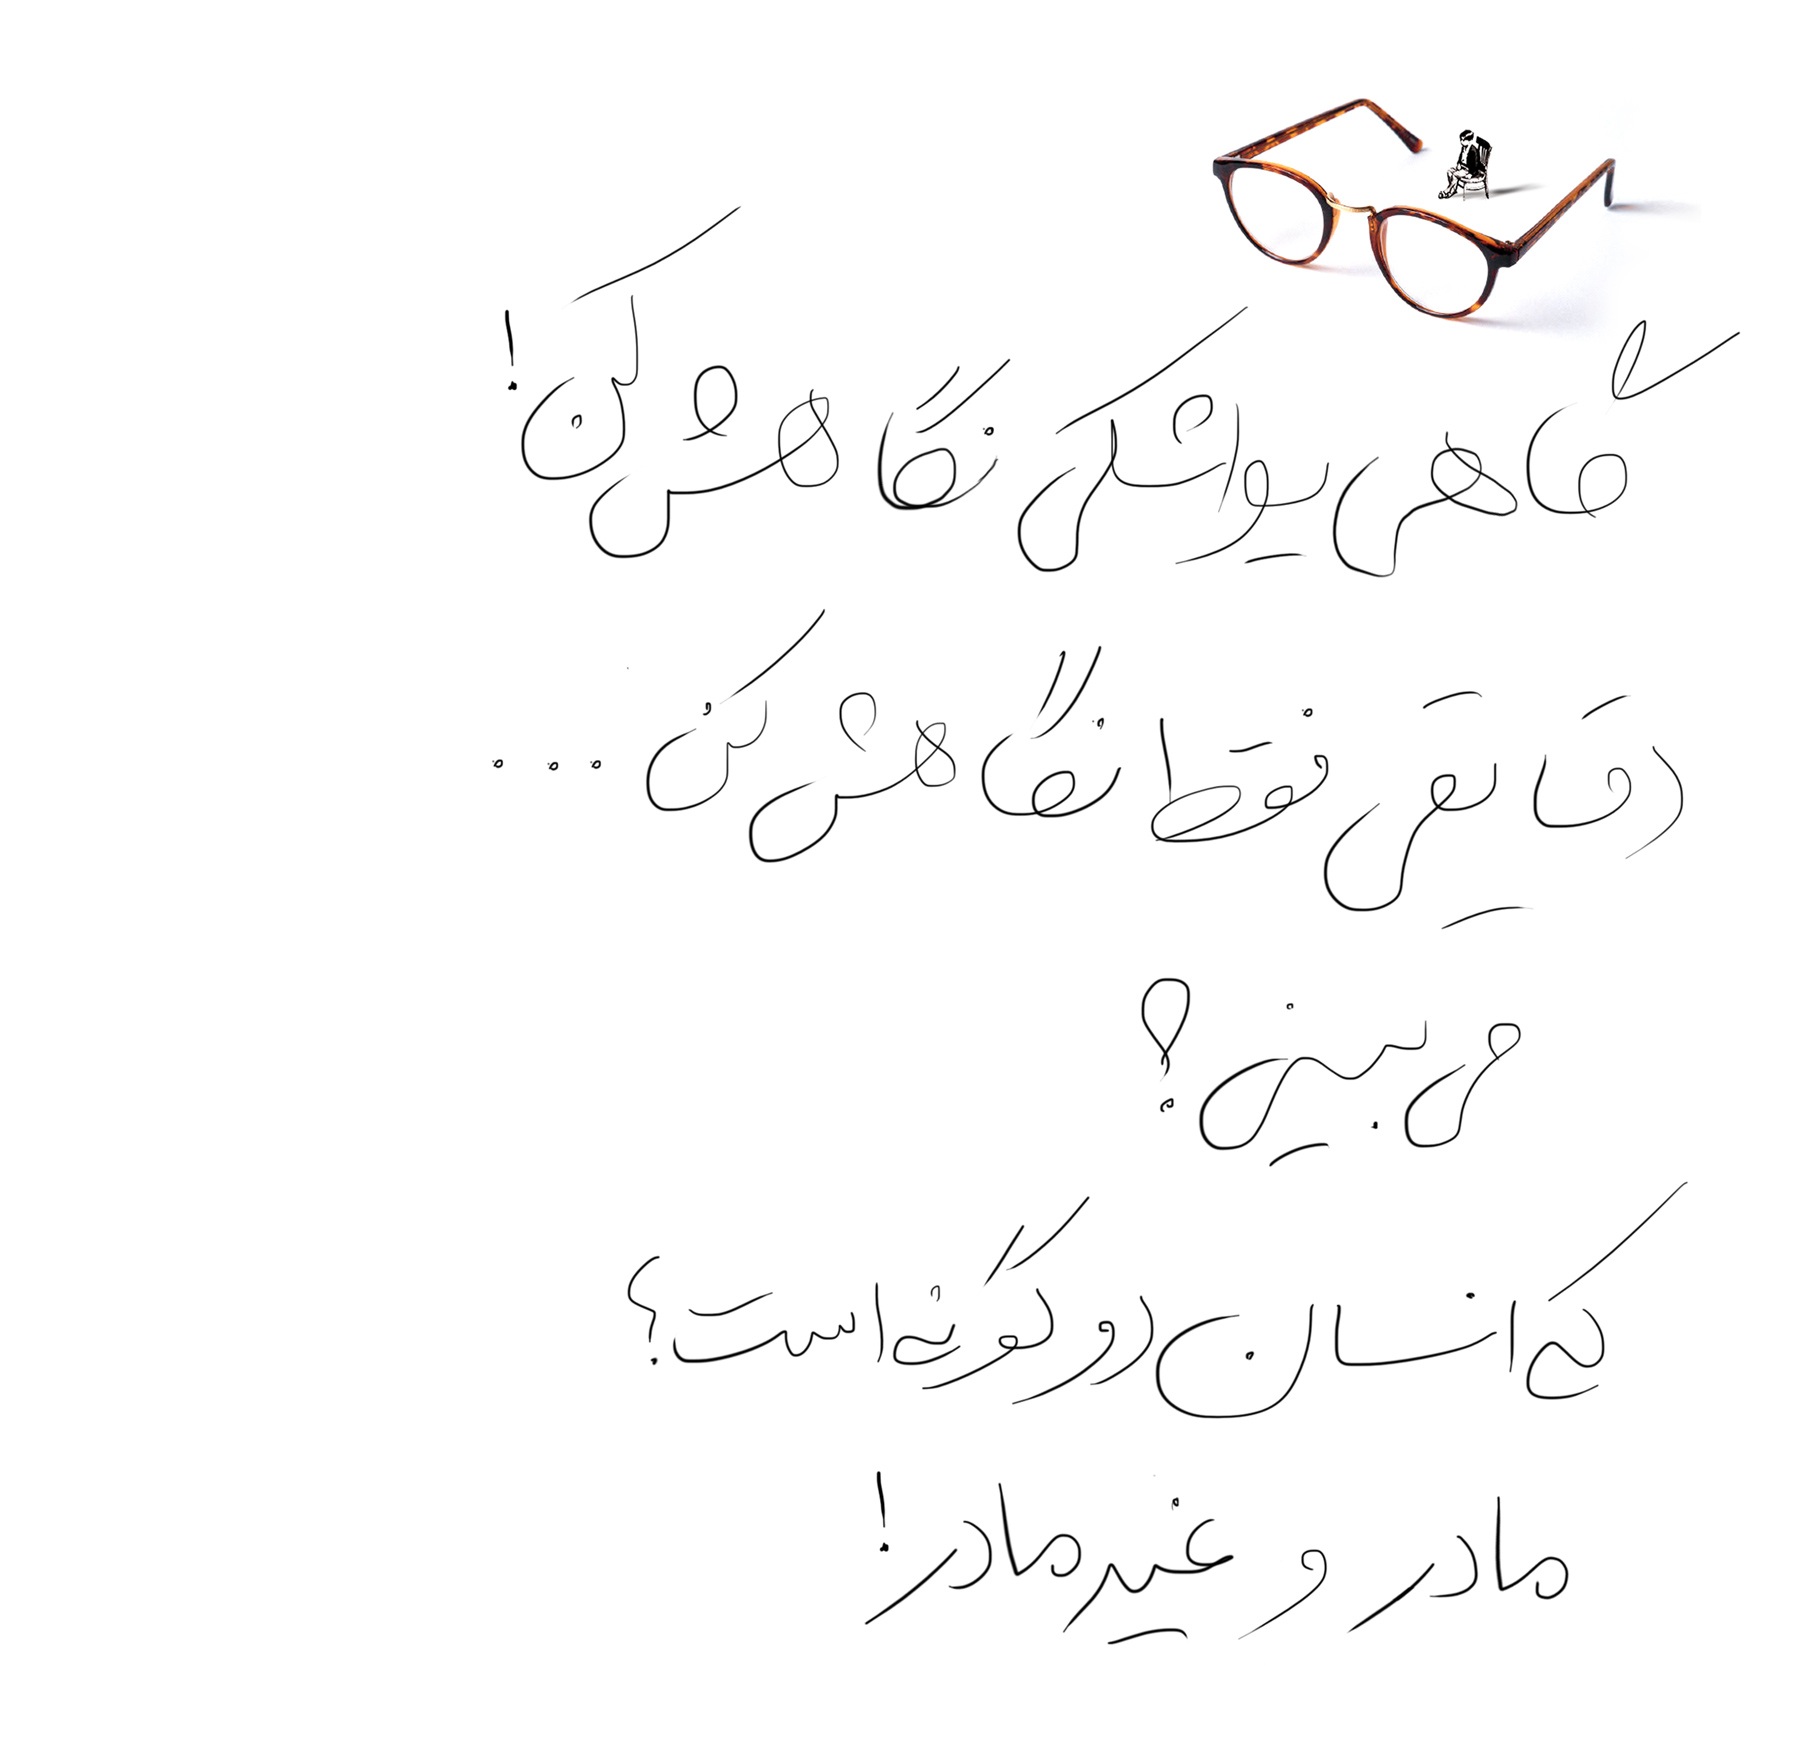 گاهی یواشکی نگاهش کن!
دقایقی فقط نگاهش کن ...
می بینی؟
که انسان دو گونه است؟
مادر و غیرمادر!